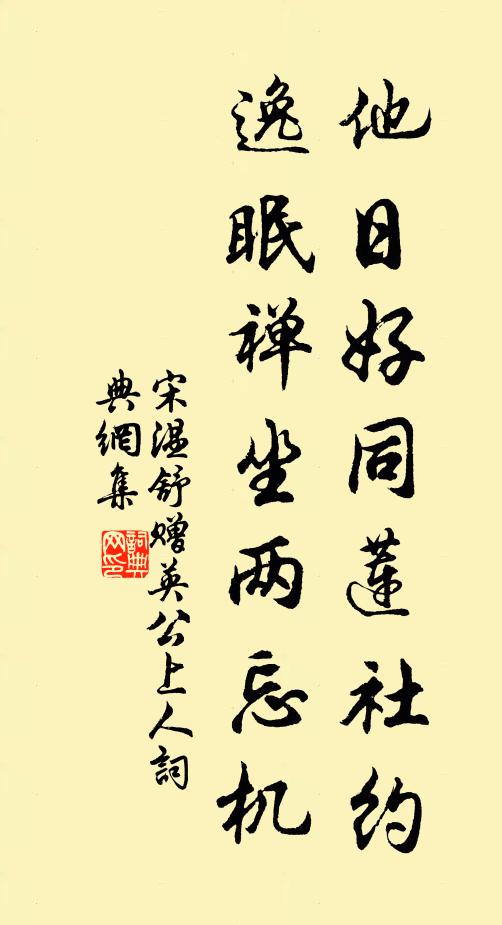 他日好同莲社约
逸眠禅坐两忘机
宋温舒赠英公上人词
典網集
詞典
网印